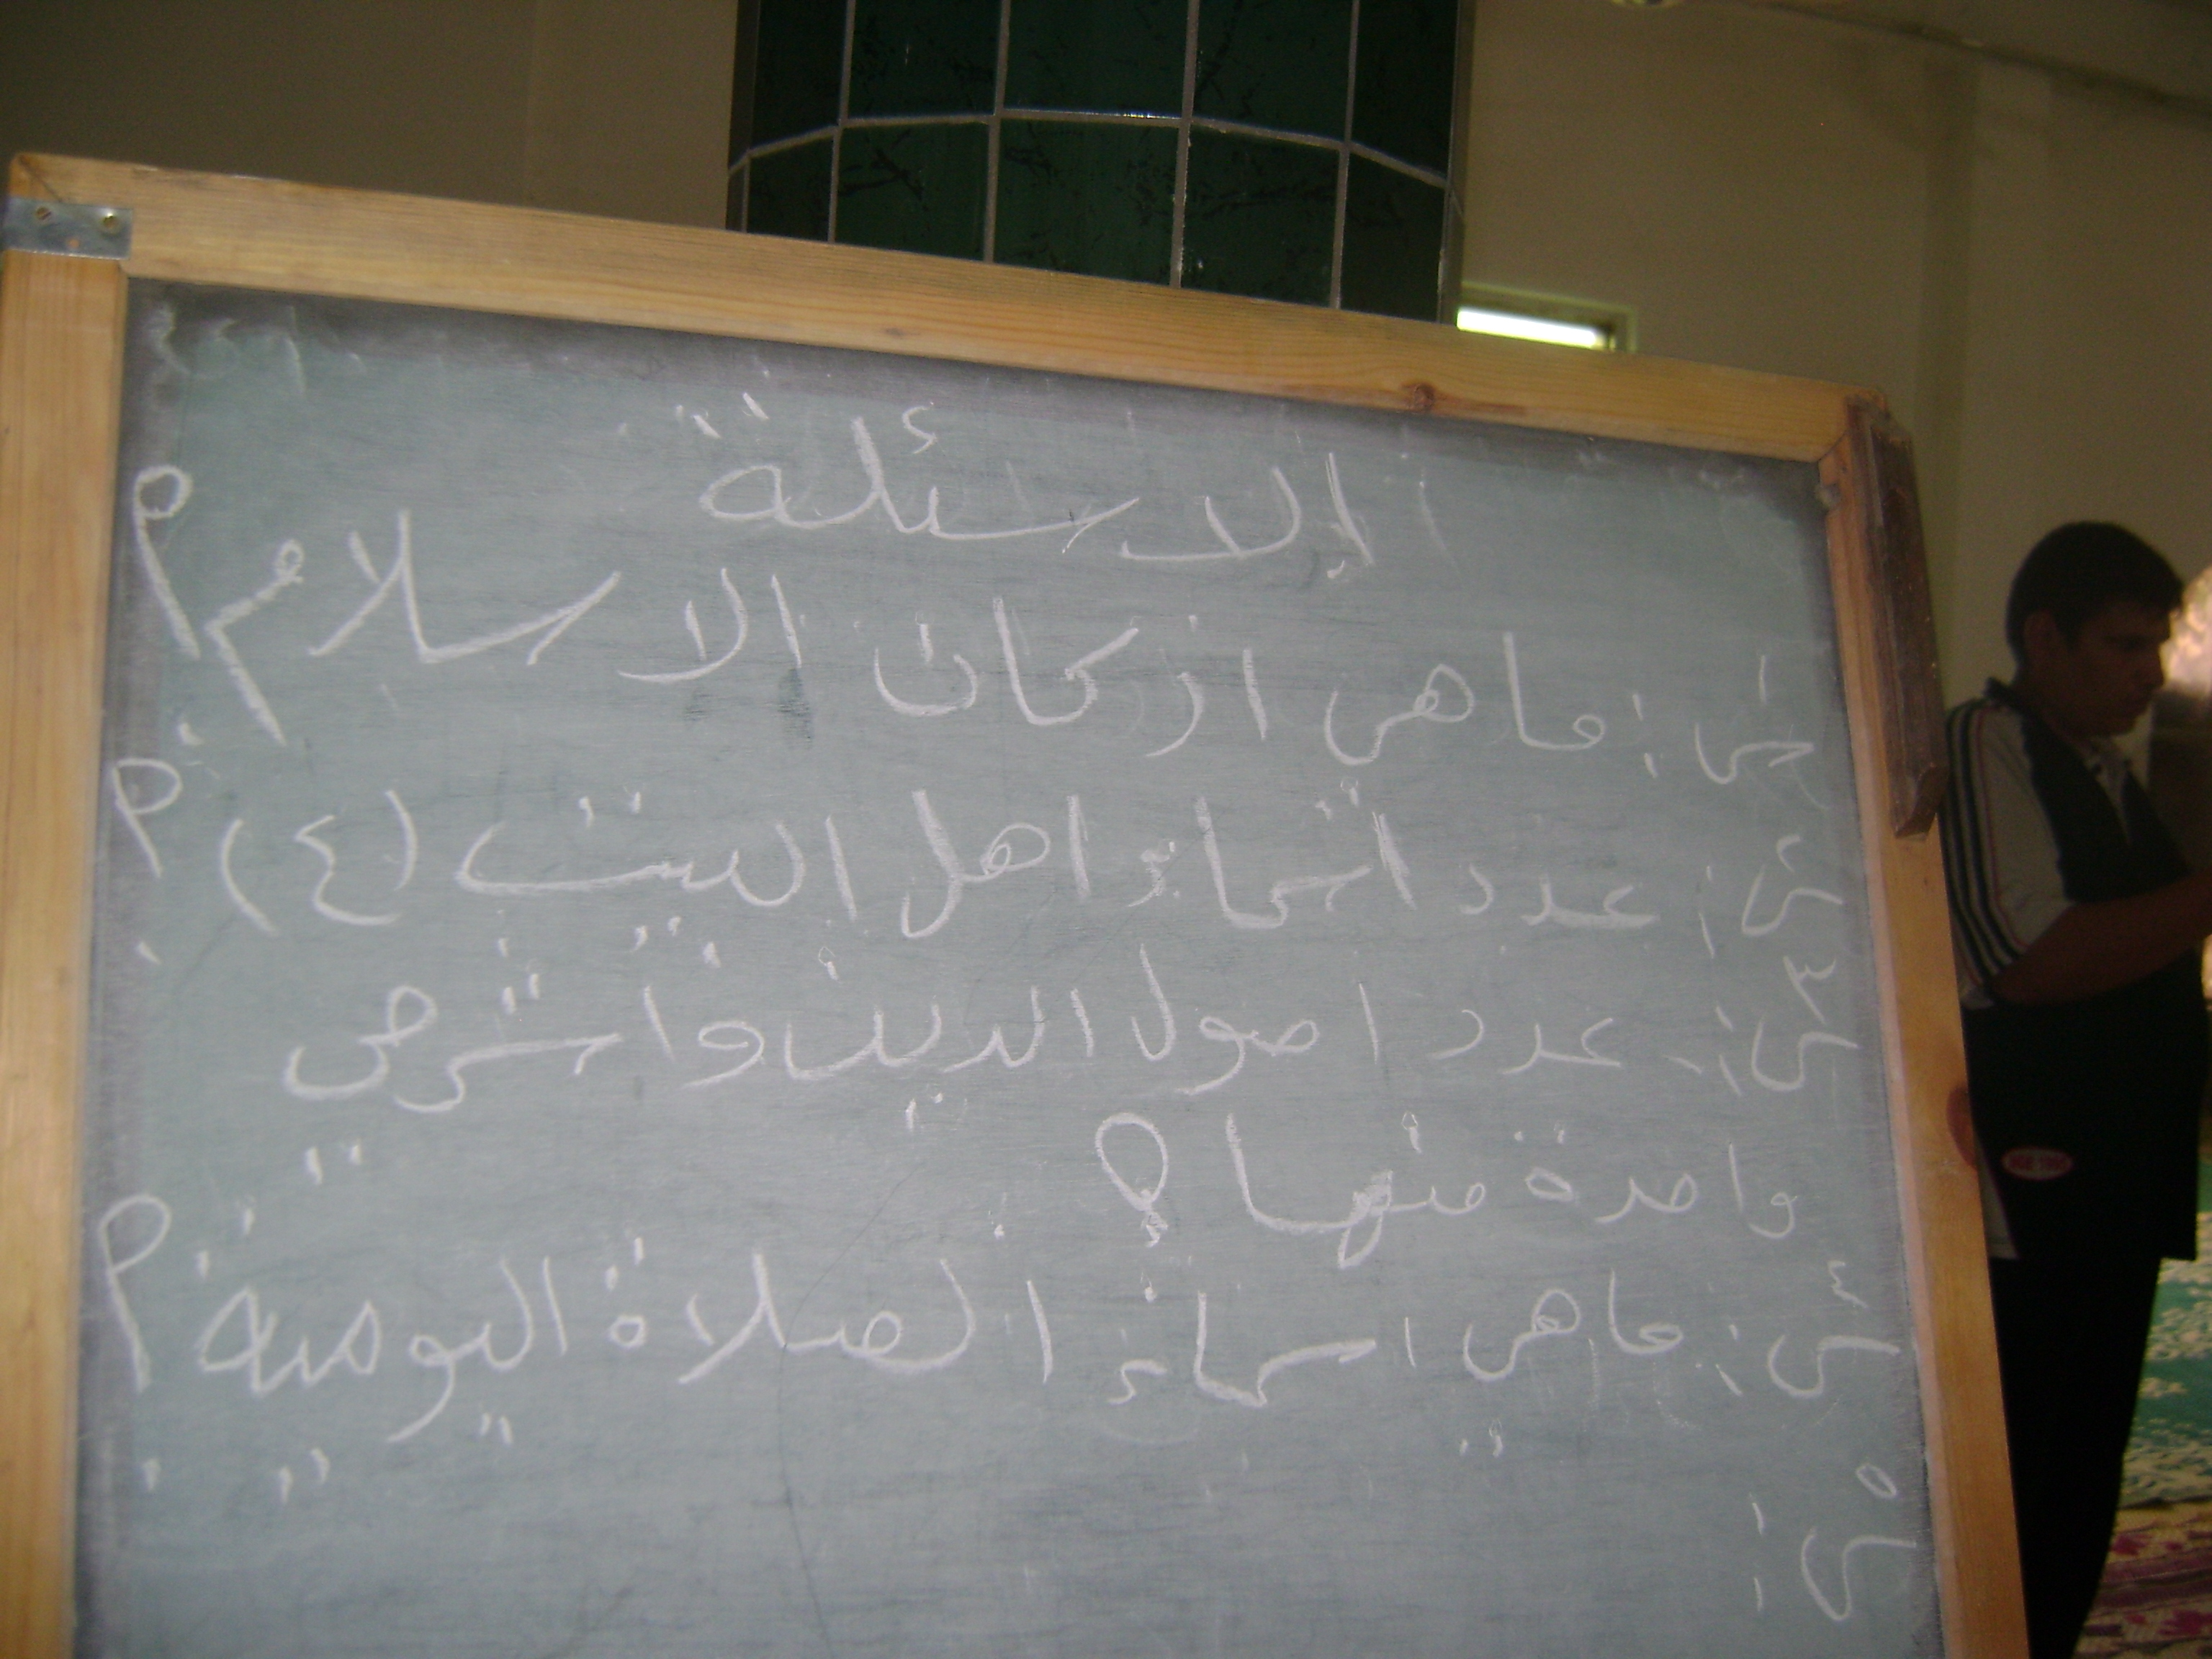 الاسئلة
س١: ماهي اركان الاسلام؟
س٢: عدد اسماء اهل البيت (ع)؟
س٣: عدد اصول الدين واشرحي
واحدة منها؟
س٤: ماهي اسماء الصلاة اليومية؟
س٥: